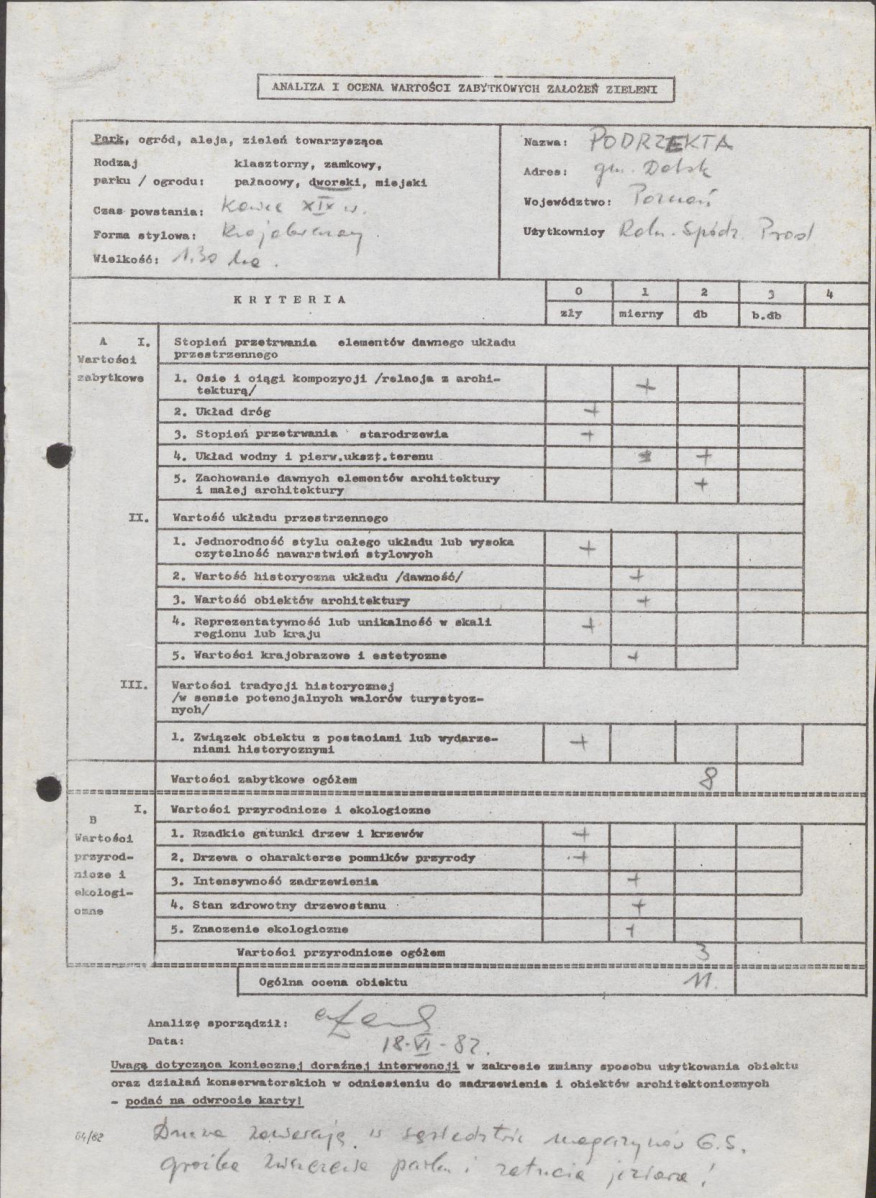 ANALIZA I OCENA WARTOŚCI ZABYTKOWYCH ZAŁOŻEŃ ZIELENI
Park, ogród, aleja, zieleń towarzysząca
Rodzaj klasztorny, zamkowy,
parku / ogrodu: pałacowy, dworski, miejski
Czas powstania: koniec XIX w.
Forma stylowa: Krajobrazowy
Wielkość: 1.30 ha.
Nazwa: PODRZEKTA
Adres: gm. Dolsk
Województwo: Poznań
Użytkownicy Roln. Spółdz. Prod
KRYTERIA 0 1 2 3 4
zły mierny db b.db
A I. Stopień przetrwania elementów dawnego układu
Wartości przestrzennego
zabytkowe 1. Osie i ciągi kompozycji /relacja z archi-
tekturą/ +
2. Układ dróg +
3. Stopień przetrwania starodrzewia +
4. Układ wodny i pierw.ukszt.terenu +
5. Zachowanie dawnych elementów architektury
i małej architektury +
II. Wartość układu przestrzennego
1. Jednorodność stylu całego układu lub wysoka
czytelność nawarstwień stylowych +
2. Wartość historyczna układu /dawność/ +
3. Wartość obiektów architektury +
4. Reprezentatywność lub unikalność w skali
regionu lub kraju +
5. Wartości krajobrazowe i estetyczne +
III. Wartości tradycji historycznej
/w sensie potencjalnych walorów turystycz-
nych/
1. Związek obiektu z postaciami lub wydarze-
niami historycznymi +
Wartości zabytkowe ogółem 8
B I. Wartości przyrodnicze i ekologiczne
Wartości 1. Rzadkie gatunki drzew i krzewów +
przyrod- 2. Drzewa o charakterze pomników przyrody +
nicze i 3. Intensywność zadrzewienia +
ekologi- 4. Stan zdrowotny drzewostanu +
czne 5. Znaczenie ekologiczne +
Wartości przyrodnicze ogółem 3
Ogólna ocena obiektu 11.
Analizę sporządził:
Data: 18-VI-82.
Uwagę dotycząca koniecznej doraźnej interwencji w zakresie zmiany sposobu użytkowania obiektu
oraz działań konserwatorskich w odniesieniu do zadrzewienia i obiektów architektonicznych
- podać na odwrocie karty!
64/82 Drzewa zamierają, w sąsiedztwie magazynów G.S.
groźba zniszczenia parku i zatrucia jeziora!